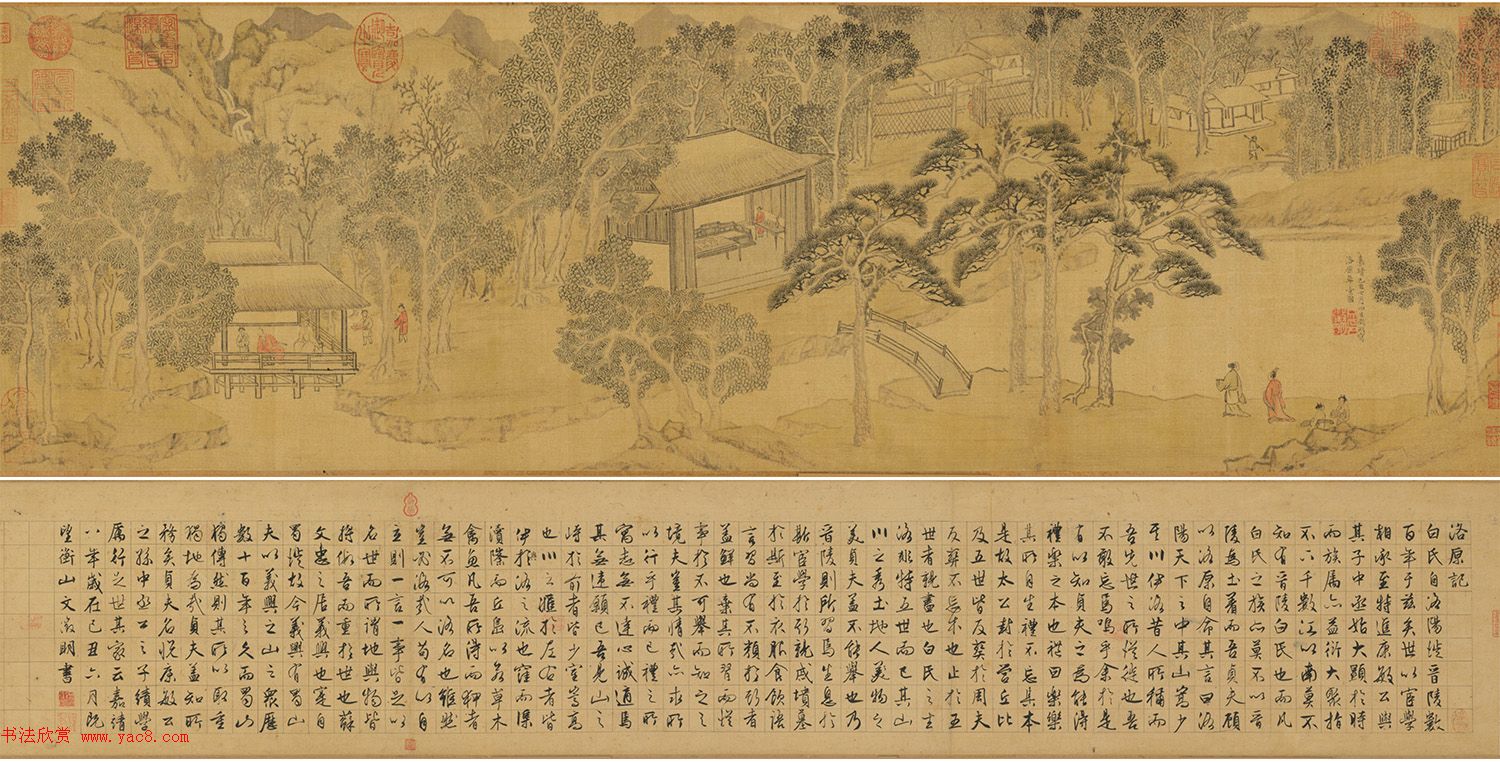 洛原記
白氏自洛陽徙晉陵數
百年于茲矣世以官學
相承至特進康敏公與
其子中丞姑大顯於時
而族屬亦益衍大聚指
不下千數江以南莫不
知有晉陵白氏也而凡
白氏之族亦莫不以晉
陵為土著而吾貞夫顧
以洛原自命其言曰洛
陽天下之中其山嵩少
其川伊洛昔人所稱而
吾先世之所從徙也吾
不敢忘焉嗚乎余於是
有以知貞夫之為能得
禮樂之本也禮曰樂樂
其所自生禮不忘其本
是故太公封於營丘比
及五世皆反葬於周夫
反葬不忘本也止於五
世者親盡也白氏之去
洛非特五世而已其山
川之秀土地人美物之
美貞夫蓋不能舉也乃
晉陵則所習焉生息於
斯官學於斯就成墳墓
於斯至於衣服飲食語
言習尚有不類於斯者
蓋鮮也棄其所習而從
事於不可舉而知之之
境夫豈其情哉亦求所
以行乎禮而已禮之所
寓志無不達心誠通焉
其無遠顧已吾見山之
峙於前者皆少室嵩高
也川之匯於左右者皆
伊於洛之流也窪而渠
瀆隆而丘島以名草木
禽魚凡吾所得而狎者
無不可以洛名也雖然
豈必洛哉人苟有以自
立則一言一事皆足以
名世而所謂地與物皆
將假吾而重於世也蘇
文忠之居義興也寔自
蜀徙故今義興有蜀山
夫以義興之山之眾歷
數十百年之久而蜀山
獨傳然則其所以取重
獨地為哉貞夫蓋知所
務矣貞夫名悅康敏公
之孫中丞公之子績學
厲行之世其家云嘉靖
八年歲在己丑六月既
望衡山文徵明書
书法欣赏 www.yac8.com